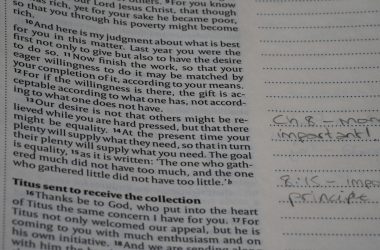 others. ⁹For you know
our Lord Jesus Christ, that though
was rich, yet for your sake he became poor,
so that you through his poverty might become
rich.
¹⁰And here is my judgment about what is best
for you in this matter. Last year you were the
first not only to give but also to have the desire
to do so. ¹¹Now finish the work, so that your
eager willingness to do it may be matched by
your completion of it, according to your means.
¹²For if the willingness is there, the gift is ac-
ceptable according to what one has, not accord-
ing to what one does not have.
¹³Our desire is not that others might be re-
lieved while you are hard pressed, but that there
might be equality. ¹⁴At the present time your
plenty will supply what they need, so that in turn
their plenty will supply what you need. The goal
is equality, ¹⁵as it is written: "The one who gath-
ered much did not have too much, and the one
who gathered little did not have too little."
Titus sent to receive the collection
¹⁶Thanks be to God, who put into the heart
of Titus the same concern I have for you. ¹⁷For
Titus not only welcomed our appeal, but he is
coming to you with much enthusiasm and on
his own initiative. ¹⁸And we are sending along
with him the
Ch. 8 -
important!
8:15 - impo
principle